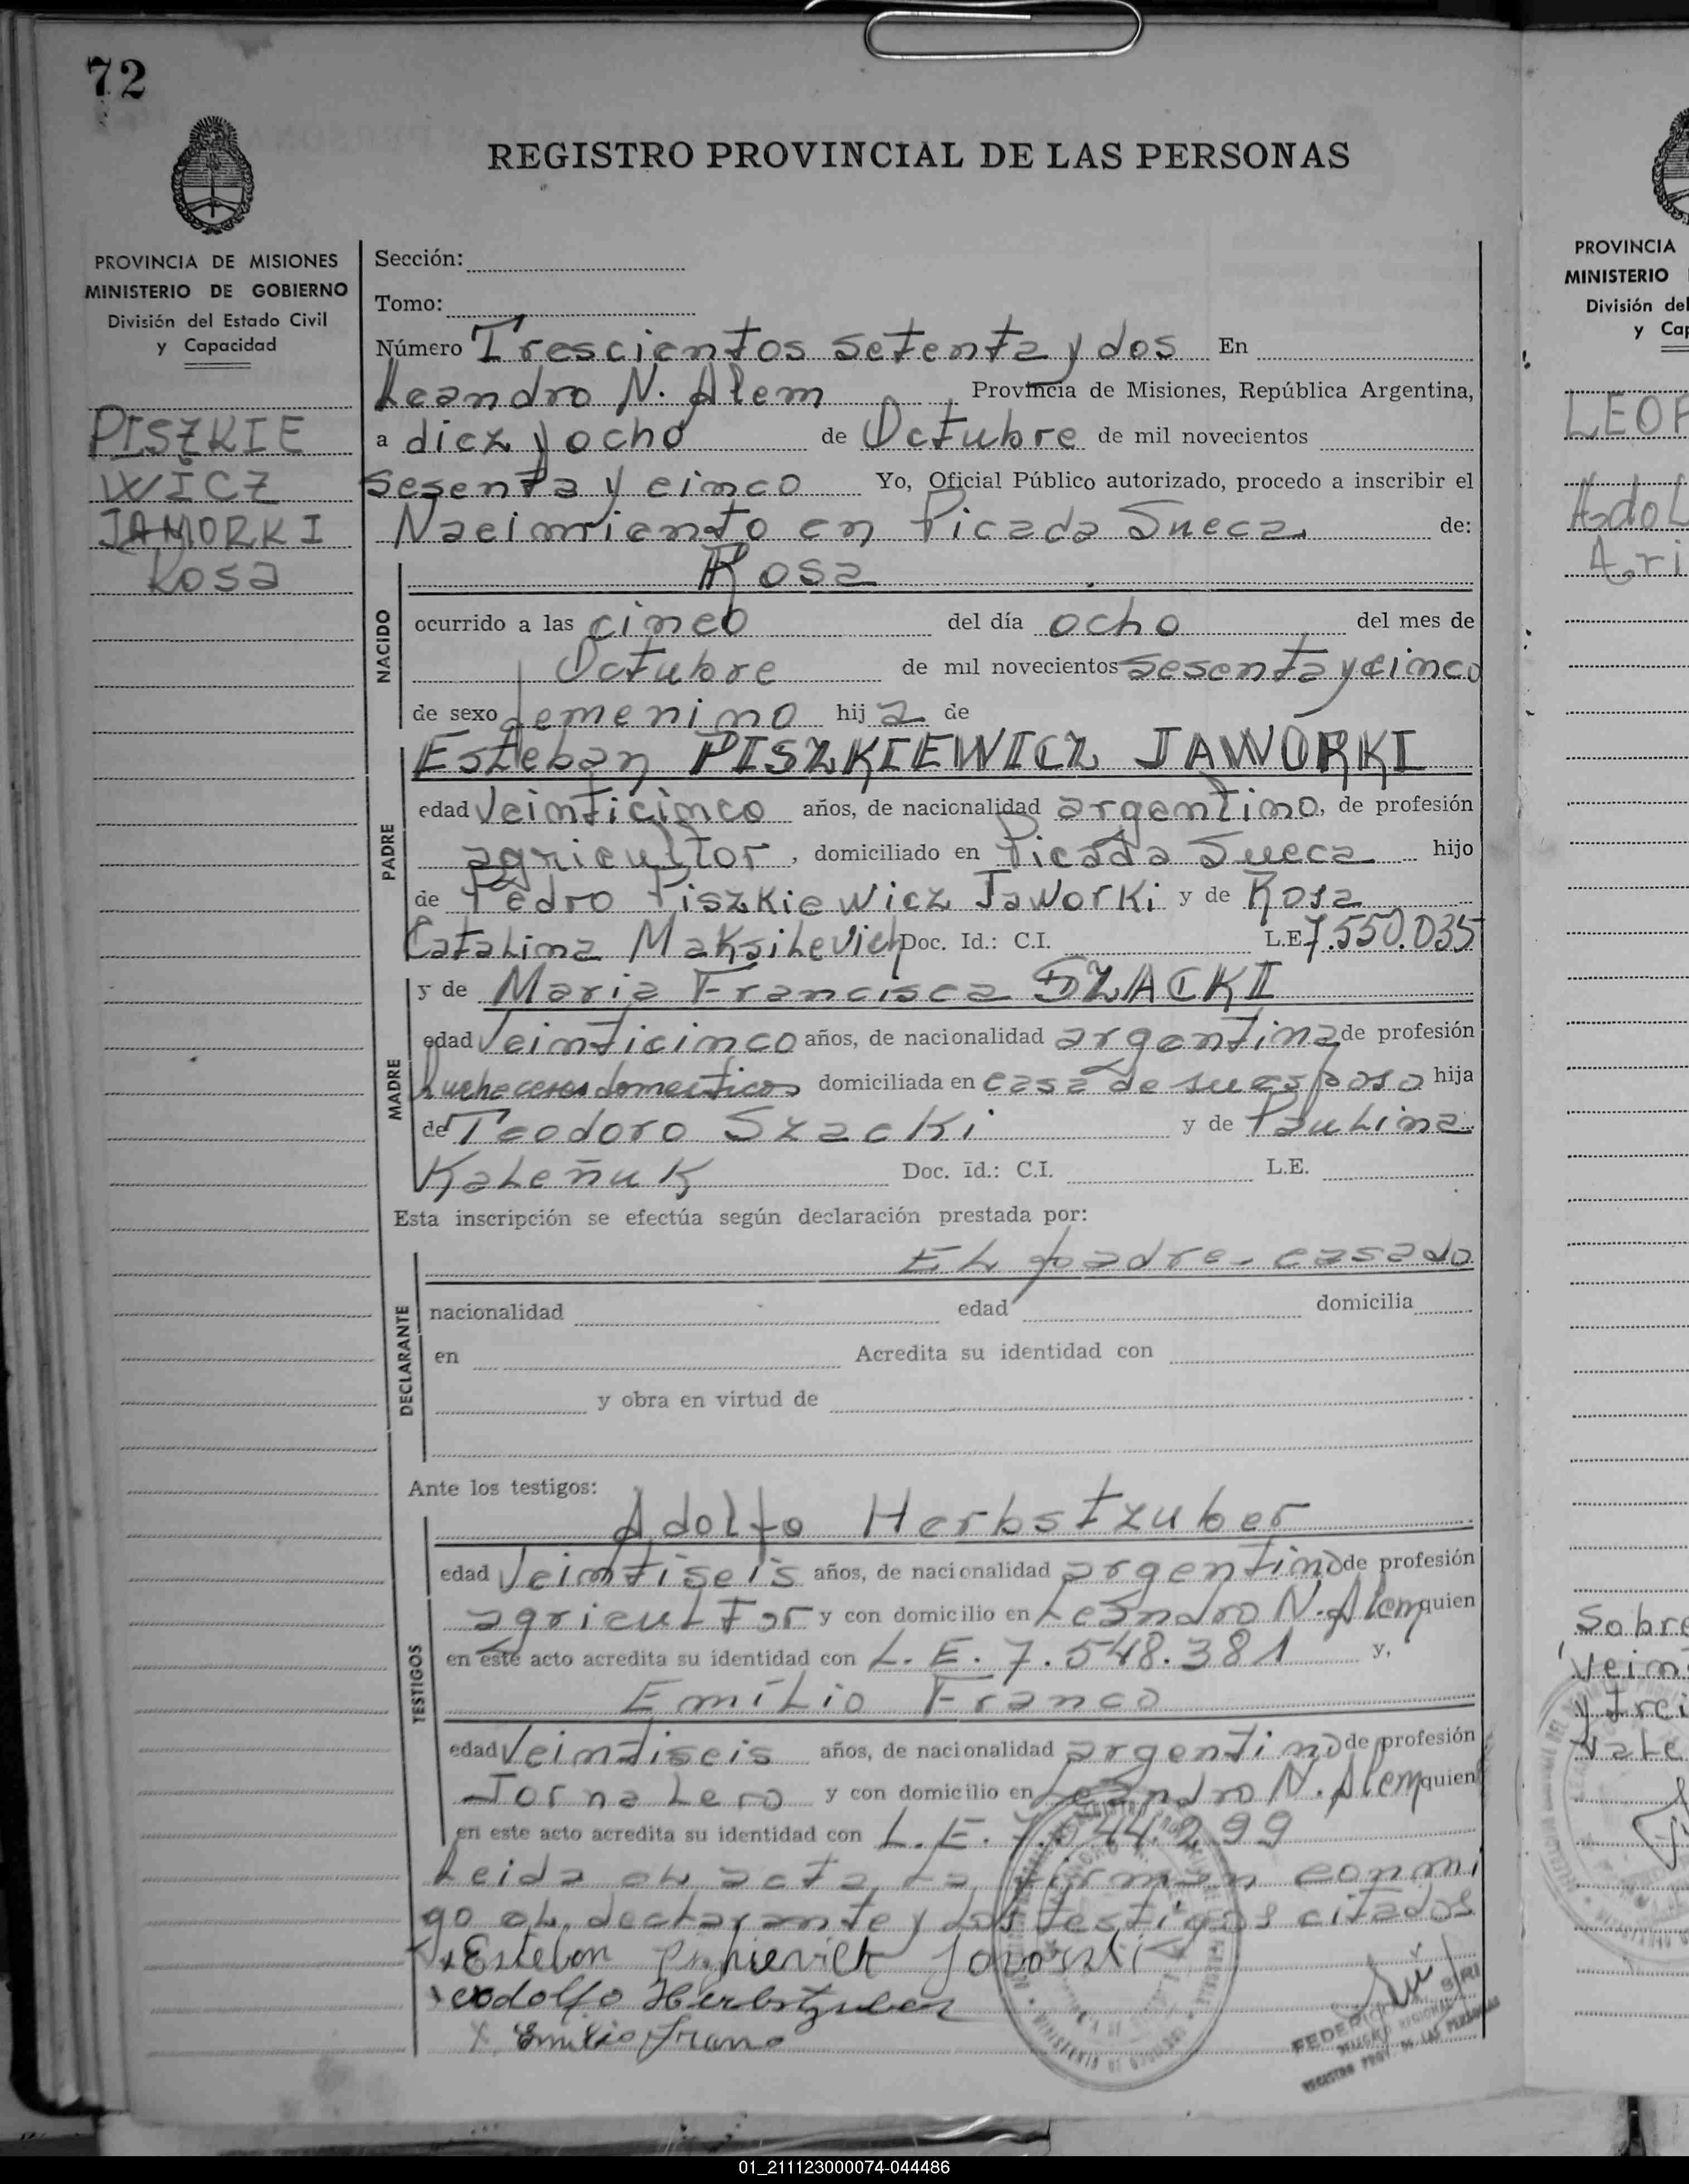 72
REGISTRO PROVINCIAL DE LAS PERSONAS
PROVINCIA DE MISIONES
MINISTERIO DE GOBIERNO
División del Estado Civil
y Capacidad
PISZKIE
WICZ
JAWORKI
Rosa
Sección:
Tomo:
Número Trescientos setenta y dos En
Leandro N. Alem Provincia de Misiones, República Argentina,
a diez y ocho de Octubre de mil novecientos
Sesenta y cinco Yo, Oficial Público autorizado, procedo a inscribir el
Nacimiento en Picada Sueca de:
Rosa
NACIDO
ocurrido a las cinco del día ocho del mes de
Octubre de mil novecientos sesenta y cinco
de sexo femenino hija de
PADRE
Esteban PISZKIEWICZ JAWORKI
edad veinticinco años, de nacionalidad argentino, de profesión
agricultor, domiciliado en Picada Sueca hijo
de Pedro Piszkiewicz Jaworki y de Rosa
Catalina Maksilevich Doc. Id.: C.I. L.E. 7.550.035
MADRE
y de Maria Francisca SZACKI
edad veinticinco años, de nacionalidad argentina de profesión
domiciliada en casa de su esposo hija
de Teodoro Szacki y de Paulina
Kaleñuk Doc. Id.: C.I. L.E.
Esta inscripción se efectúa según declaración prestada por:
DECLARANTE
El padre - casado
nacionalidad edad domicilia
en Acredita su identidad con
y obra en virtud de
Ante los testigos:
TESTIGOS
Adolfo Herbstzuber
edad Veintiseis años, de nacionalidad argentino de profesión
agricultor y con domicilio en Leandro N. Alem quien
en este acto acredita su identidad con L.E. 7.548.381 y,
Emilio Franco
edad Veintiseis años, de nacionalidad argentino de profesión
Jornalero y con domicilio en Leandro N. Alem quien
en este acto acredita su identidad con L.E. 7.544.299
Leida el acta, la firman conmi
go el declarante y los testigos citados
Esteban
Adolfo Herbstzuber
Emilio Franco
FEDERICO
DELEGADO REGIONAL
REGISTRO PROV. DE LAS PERSONAS
PROVINCIA
MINISTERIO
División del
y Cap
LEOP
Adol
Ari
Sobre
Vein
y trei
Vale
01_211123000074-044486